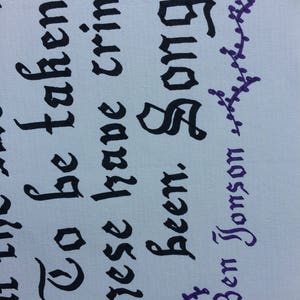 To be taken
these have crim
been. Song
Ben Jonson